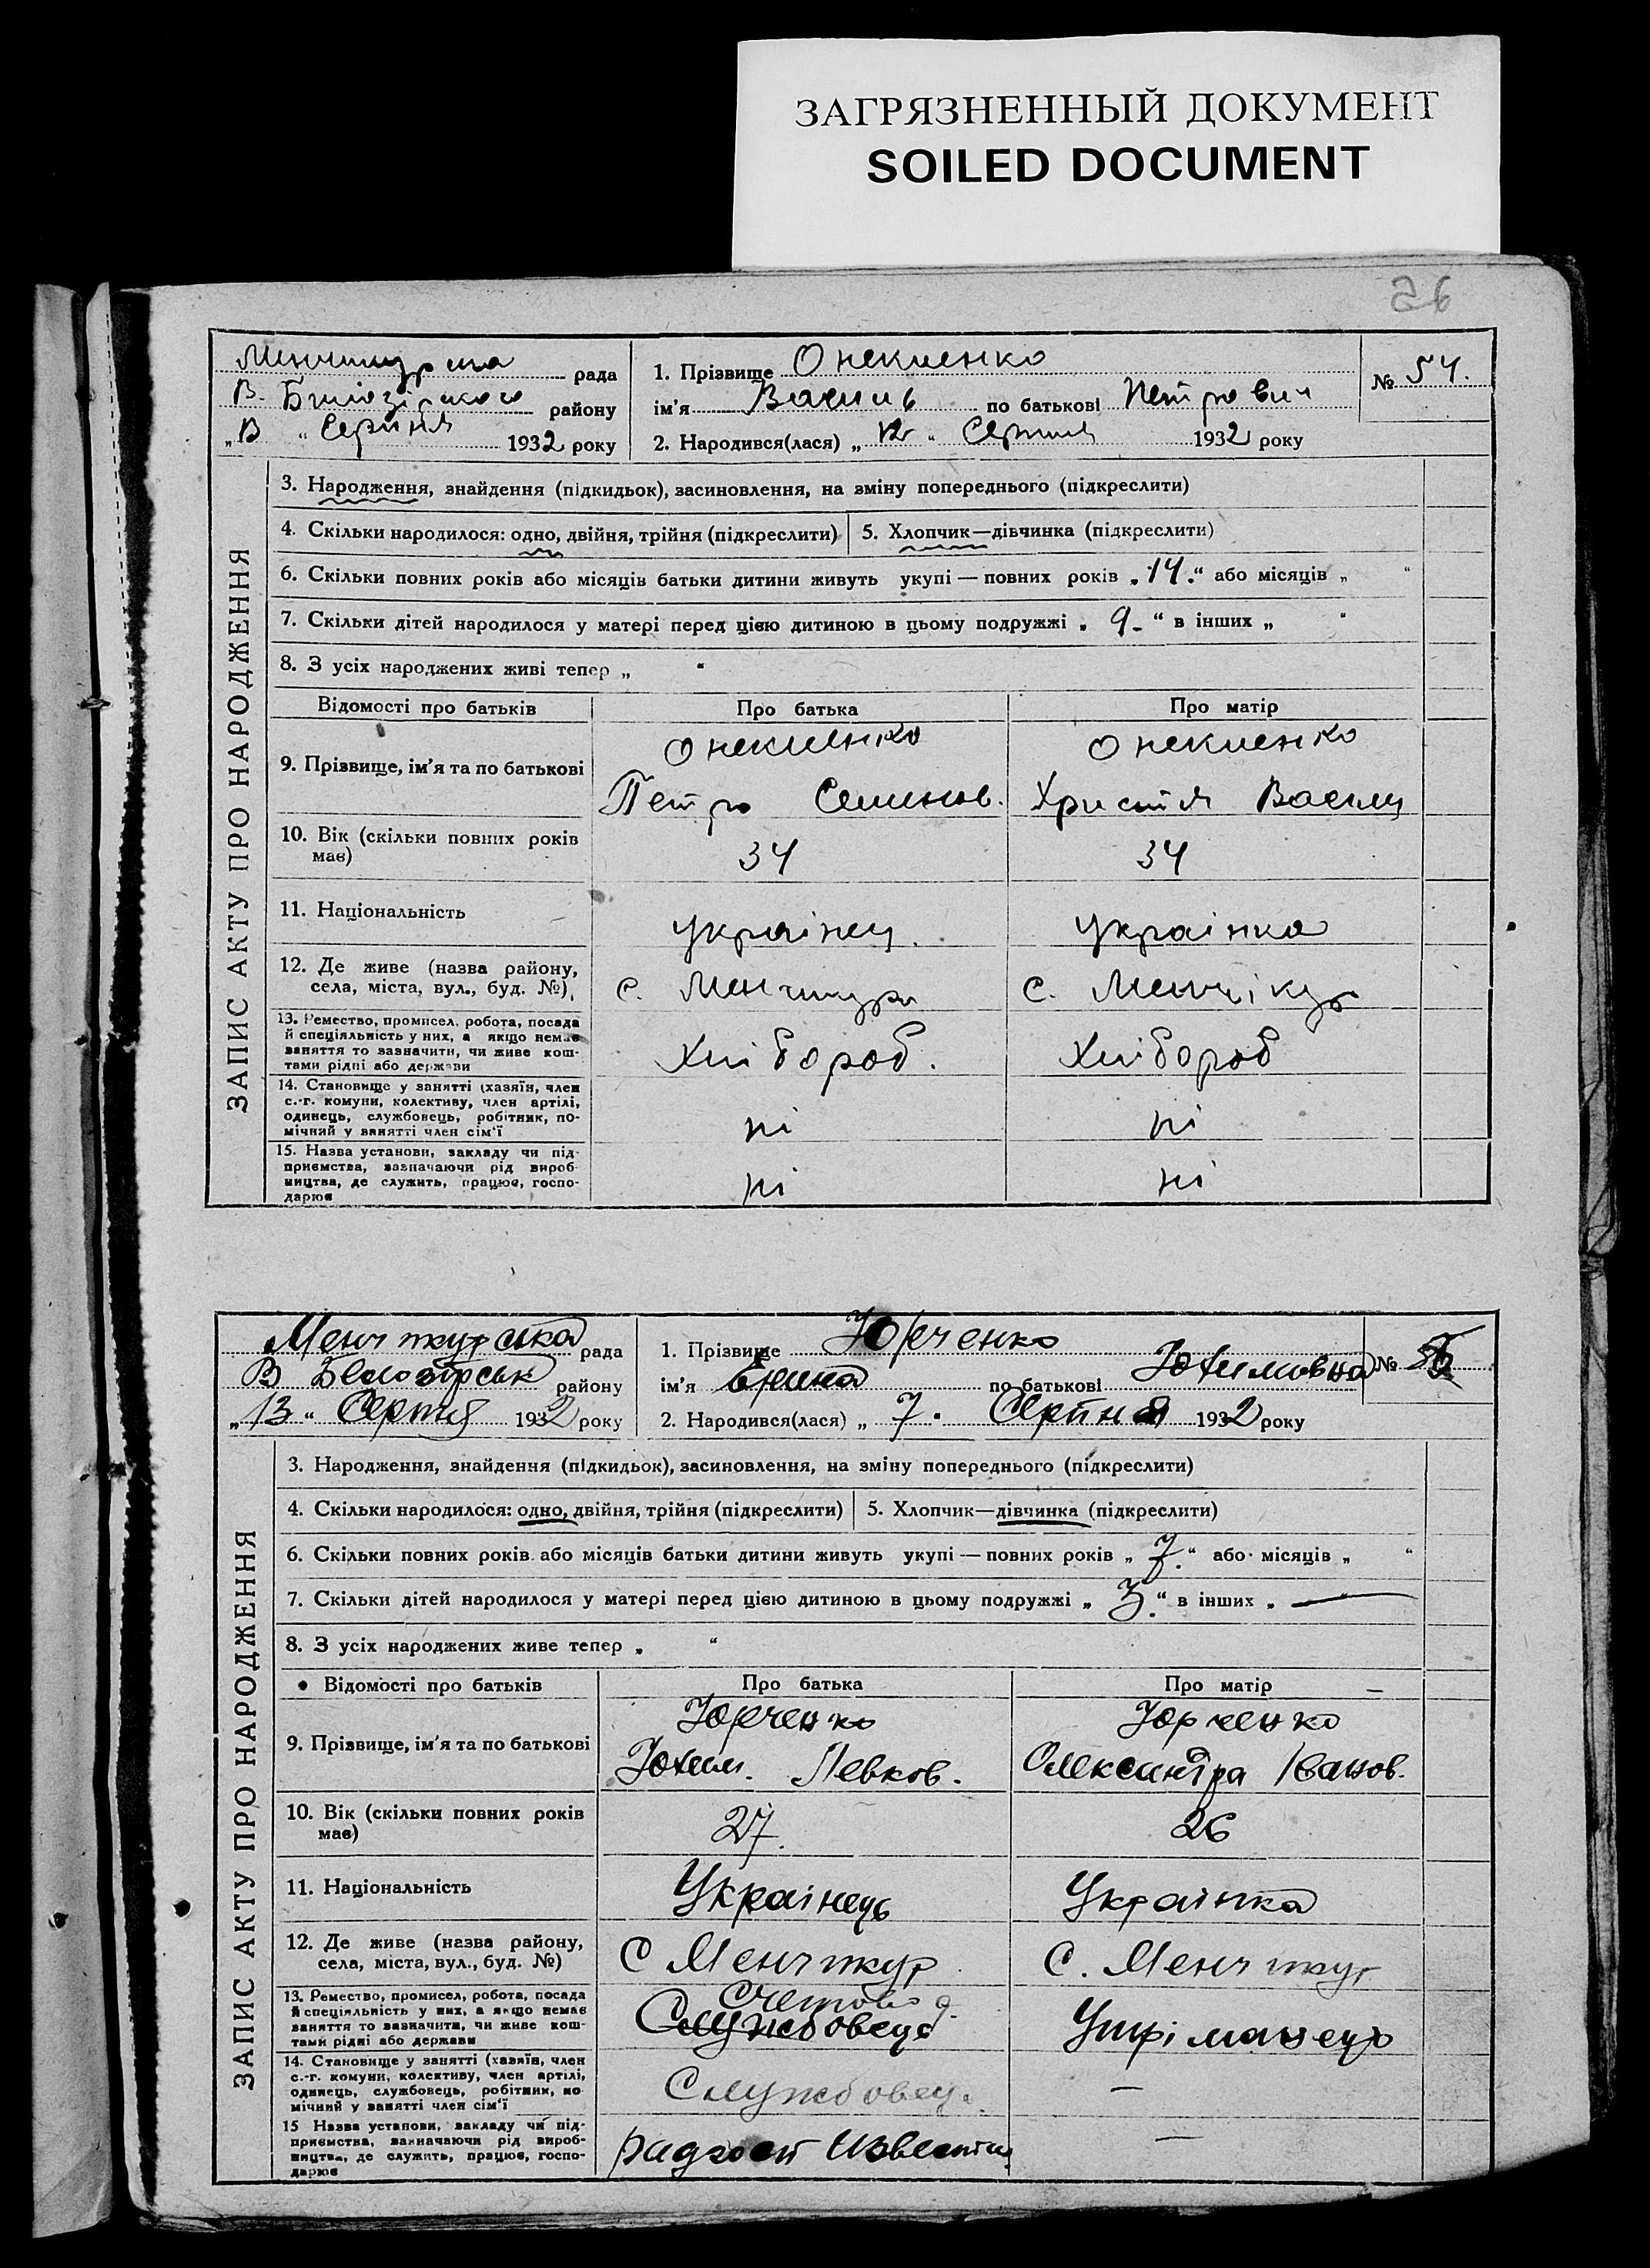 ЗАГРЯЗНЕННЫЙ ДОКУМЕНТ
SOILED DOCUMENT
рада
В. району
„13“ Серпня 1932 року
1. Прізвище
ім'я Василь по батькові Петрович
2. Народився(лася) „12“ Серпня 1932 року
№ 54.
ЗАПИС АКТУ ПРО НАРОДЖЕННЯ
3. Народження, знайдення (підкидьок), засиновлення, на зміну попереднього (підкреслити)
4. Скільки народилося: одно, двійня, трійня (підкреслити)
5. Хлопчик—дівчинка (підкреслити)
6. Скільки повних років або місяців батьки дитини живуть укупі — повних років „14.“ або місяців „ “
7. Скільки дітей народилося у матері перед цією дитиною в цьому подружжі „ 9- “ в інших „ “
8. З усіх народжених живі тепер „ “
Відомості про батьків Про батька Про матір
9. Прізвище, ім'я та по батькові
Петро Семенов. Христя Васил
10. Вік (скільки повних років має) 34 34
11. Національність українец. українка
12. Де живе (назва району, села, міста, вул., буд. №) с. с.
13. Ремество, промисел, робота, посада й спеціяльність у них, а якщо немає заняття то зазначити, чи живе коштами рідні або держави Хлібороб. Хлібороб
14. Становище у занятті (хазяїн, член с.-г. комуни, колективу, член артілі, одинець, службовець, робітник, помічний у занятті член сім'ї ні ні
15. Назва установи, закладу чи підприємства, зазначаючи рід виробництва, де служить, працює, господарює ні ні
Менчикурська рада
В району
„13“ Серпня 1932 року
1. Прізвище Юрченко
ім'я по батькові Юхимовна
2. Народився(лася) „ 7. Серпня 1932 року
№
ЗАПИС АКТУ ПРО НАРОДЖЕННЯ
3. Народження, знайдення (підкидьок), засиновлення, на зміну попереднього (підкреслити)
4. Скільки народилося: одно, двійня, трійня (підкреслити)
5. Хлопчик—дівчинка (підкреслити)
6. Скільки повних років або місяців батьки дитини живуть укупі — повних років „ 7.“ або місяців „ “
7. Скільки дітей народилося у матері перед цією дитиною в цьому подружжі „ 3.“ в інших „ —
8. З усіх народжених живе тепер „ “
Відомості про батьків Про батька Про матір
9. Прізвище, ім'я та по батькові Юрченко Юрченко
Юхим. Левков. Олександра Іванов.
10. Вік (скільки повних років має) 27. 26
11. Національність Українець Українка
12. Де живе (назва району, села, міста, вул., буд. №) С Менчикур С. Менчикур
13. Ремество, промисел, робота, посада й спеціяльність у них, а якщо немає заняття то зазначити, чи живе коштами рідні або держави Счетовод Службовець Утріманець
14. Становище у занятті (хазяїн, член с.-г. комуни, колективу, член артілі, одинець, службовець, робітник, помічний у занятті член сім'ї Службовец. —
15 Назва установи, закладу чи підприємства, зазначаючи рід виробництва, де служить, працює, господарює радгосп —